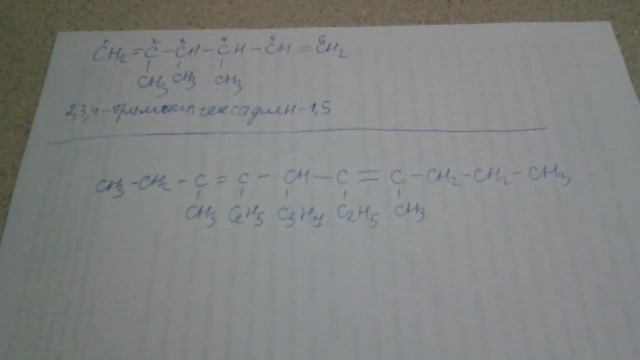 CH₂=C-CH-CH-CH=CH₂
CH₃ CH₃ CH₃
2,3,4-триметилгексадиен-1,5
CH₃-CH₂-C=C-CH-C=C-CH₂-CH₂-CH₃
CH₃ C₂H₅ C₃H₇ C₂H₅ CH₃